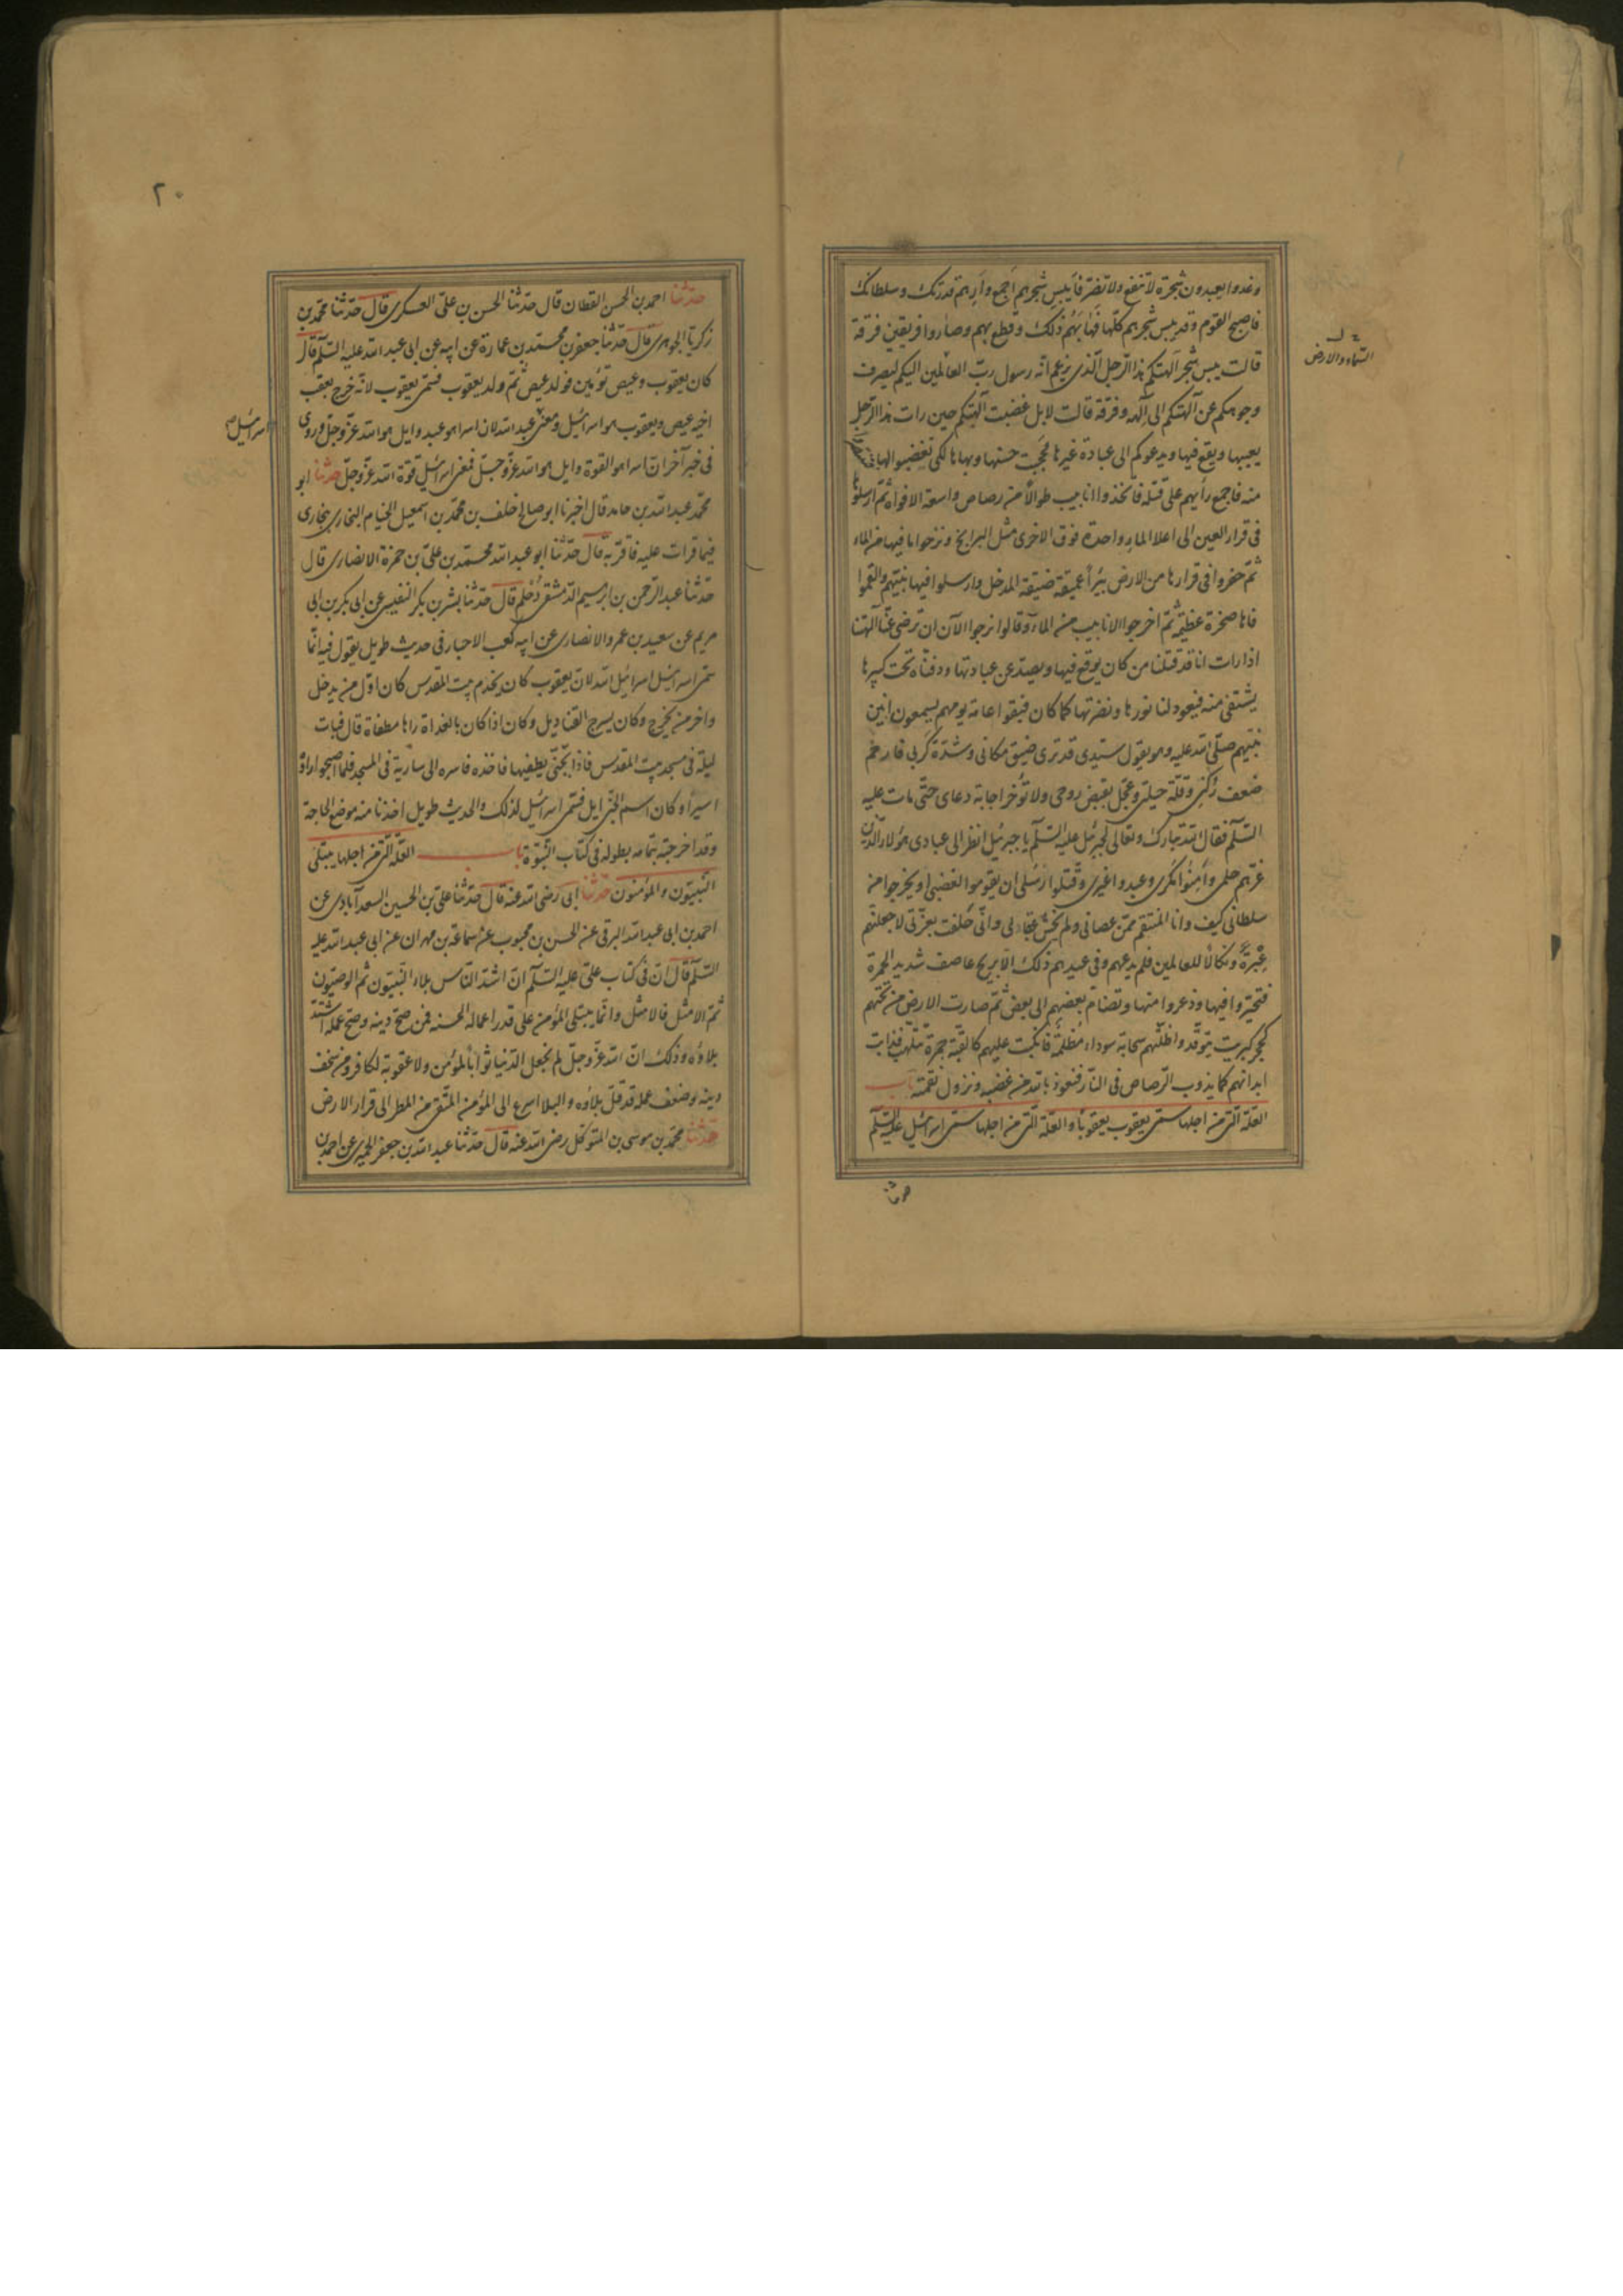 وغدوا يعبدون شجرة لا تنفع ولا تضر فأيبس شجرهم اجمع وأرهم قدرتك وسلطانك
فاصبح القوم وقد يبس شجرهم كلها فهالهم ذلك وقطع بهم وصاروا فريقين فرقة
السماء والارض
قالت يبس شجر آلهتكم هذا الرجل الذى يزعم انه رسول رب العالمين اليكم ليصرف
وجوهكم عن آلهتكم الى الهه وفرقة قالت لا بل غضبت آلهتكم حين رات هذا الرجل
يعيبها ويقع فيها ويدعوكم الى عبادة غيرها فحجبت حسنها وبهاءها لكى تغضبوا لها
منه فاجمع رأيهم على قتله فاتخذوا انابيب طوالا من رصاص واسعة الافواه ثم ارسلوها
فى قرار العين الى اعلا الماء واحدة فوق الاخرى مثل البرابخ ونزحوا ما فيها من الماء
ثم حفروا فى قرارها من الارض بئرا عميقة ضيقة المدخل وارسلوا فيها نبيهم والقموا
فاها صخرة عظيمة ثم اخرجوا الانابيب من الماء وقالوا نرجوا الآن ان ترضى عنا آلهتنا
اذا رات انا قد قتلنا من كان يوقع فيها ويصد عن عبادتها ودفناه تحت كبيرها
يشتفى منه فيعود لنا نورها ونضرتها كما كان فبقوا عامة يومهم يسمعون انين
نبيهم صلى الله عليه وهو يقول سيدى قد ترى ضيق مكانى وشدة كربى فارحم
ضعف ركنى وقلة حيلتى وعجل بقبض روحى ولا تؤخر اجابة دعاى حتى مات عليه
السلم فقال الله تبارك وتعالى لجبرئيل عليه السلم يا جبرئيل انظر الى عبادى هؤلاء الذين
غرهم حلمى وأمنوا مكرى وعبدوا غيرى وقتلوا رسلى ان يقوموا لغضبى او يخرجوا من
سلطانى كيف وانا المنتقم ممن عصانى ولم يخش عقابى وانى حلفت بعزتى لاجعلنهم
عبرة ونكالا للعالمين فلم يدعهم وفى عيدهم ذلك الا بريح عاصف شديد الحمرة
فتحيروا فيها وذعروا منها وتضام بعضهم الى بعض ثم صارت الارض من تحتهم
كحجر كبريت يتوقد واظلتهم سحابة سوداء مظلمة فانكبت عليهم كالقبة جمرة تتلهب فذابت
ابدانهم كما يذوب الرصاص فى النار فنعوذ بالله من غضبه ونزول نقمته باب
العلة التى من اجلها سمى يعقوب يعقوبا والعلة التى من اجلها سمى اسرائيل عليه السلم
حدثنا
٢٠
حدثنا احمد بن الحسن القطان قال حدثنا الحسن بن على العسكرى قال حدثنا محمد بن
زكريا الجوهرى قال حدثنا جعفر بن محمد بن عمارة عن ابيه عن ابى عبد الله عليه السلم قال
كان يعقوب وعيص توئمين فولد عيص ثم ولد يعقوب فسمى يعقوب لانه خرج بعقب
اخيه عيص ويعقوب هو اسرائيل ومعنى عبد الله لان اسرا هو عبد وايل هو الله عز وجل وروى
اسرائيل
فى خبر آخر ان اسرا هو القوة وايل هو الله عز وجل فمعنى اسرائيل قوة الله عز وجل حدثنا ابو
محمد عبد الله بن حامد قال اخبرنا ابو صالح خلف بن محمد بن اسمعيل الخيام البخارى ببخارى
فيما قرات عليه فاقر به قال حدثنا ابو عبد الله محمد بن على بن حمزة الانصارى قال
حدثنا عبد الرحمن بن ابرهيم الدمشقى دحيم قال حدثنا بشر بن بكر النفيسى عن ابى بكر بن ابى
مريم عن سعيد بن عمرو الانصارى عن ابيه كعب الاحبار فى حديث طويل يقول فيه انما
سمى اسرائيل اسرائيل الله لان يعقوب كان يخدم بيت المقدس كان اول من يدخل
واخر من يخرج وكان يسرج القناديل وكان اذا كان بالغداة راها مطفاة قال فبات
ليلة فى مسجد بيت المقدس فاذا بجنى يطفيها فاخذه فاسره الى سارية فى المسجد فلما اصبحوا راوه
اسيرا وكان اسم الجنى ايل فسمى اسرائيل لذلك والحديث طويل اخذنا منه موضع الحاجة
وقد اخرجته بتمامه بطوله فى كتاب النبوة باب العلة التى من اجلها يبتلى
النبيون والمؤمنون حدثنا ابى رضى الله عنه قال حدثنا على بن الحسين السعدآبادى عن
احمد بن ابى عبد الله البرقى عن الحسن بن محبوب عن سماعة بن مهران عن ابى عبد الله عليه
السلم قال ان فى كتاب على عليه السلم ان اشد الناس بلاء النبيون ثم الوصيون
ثم الامثل فالامثل وانما يبتلى المؤمن على قدر اعماله الحسنه فمن صح دينه وصح عمله اشتد
بلاؤه وذلك ان الله عز وجل لم يجعل الدنيا ثوابا لمؤمن ولا عقوبة لكافر ومن سخف
دينه وضعف عمله قد قل بلاؤه والبلا اسرع الى المؤمن المتقى من المطر الى قرار الارض
حدثنا محمد بن موسى بن المتوكل رضى الله عنه قال حدثنا عبد الله بن جعفر الحميرى عن احمد بن